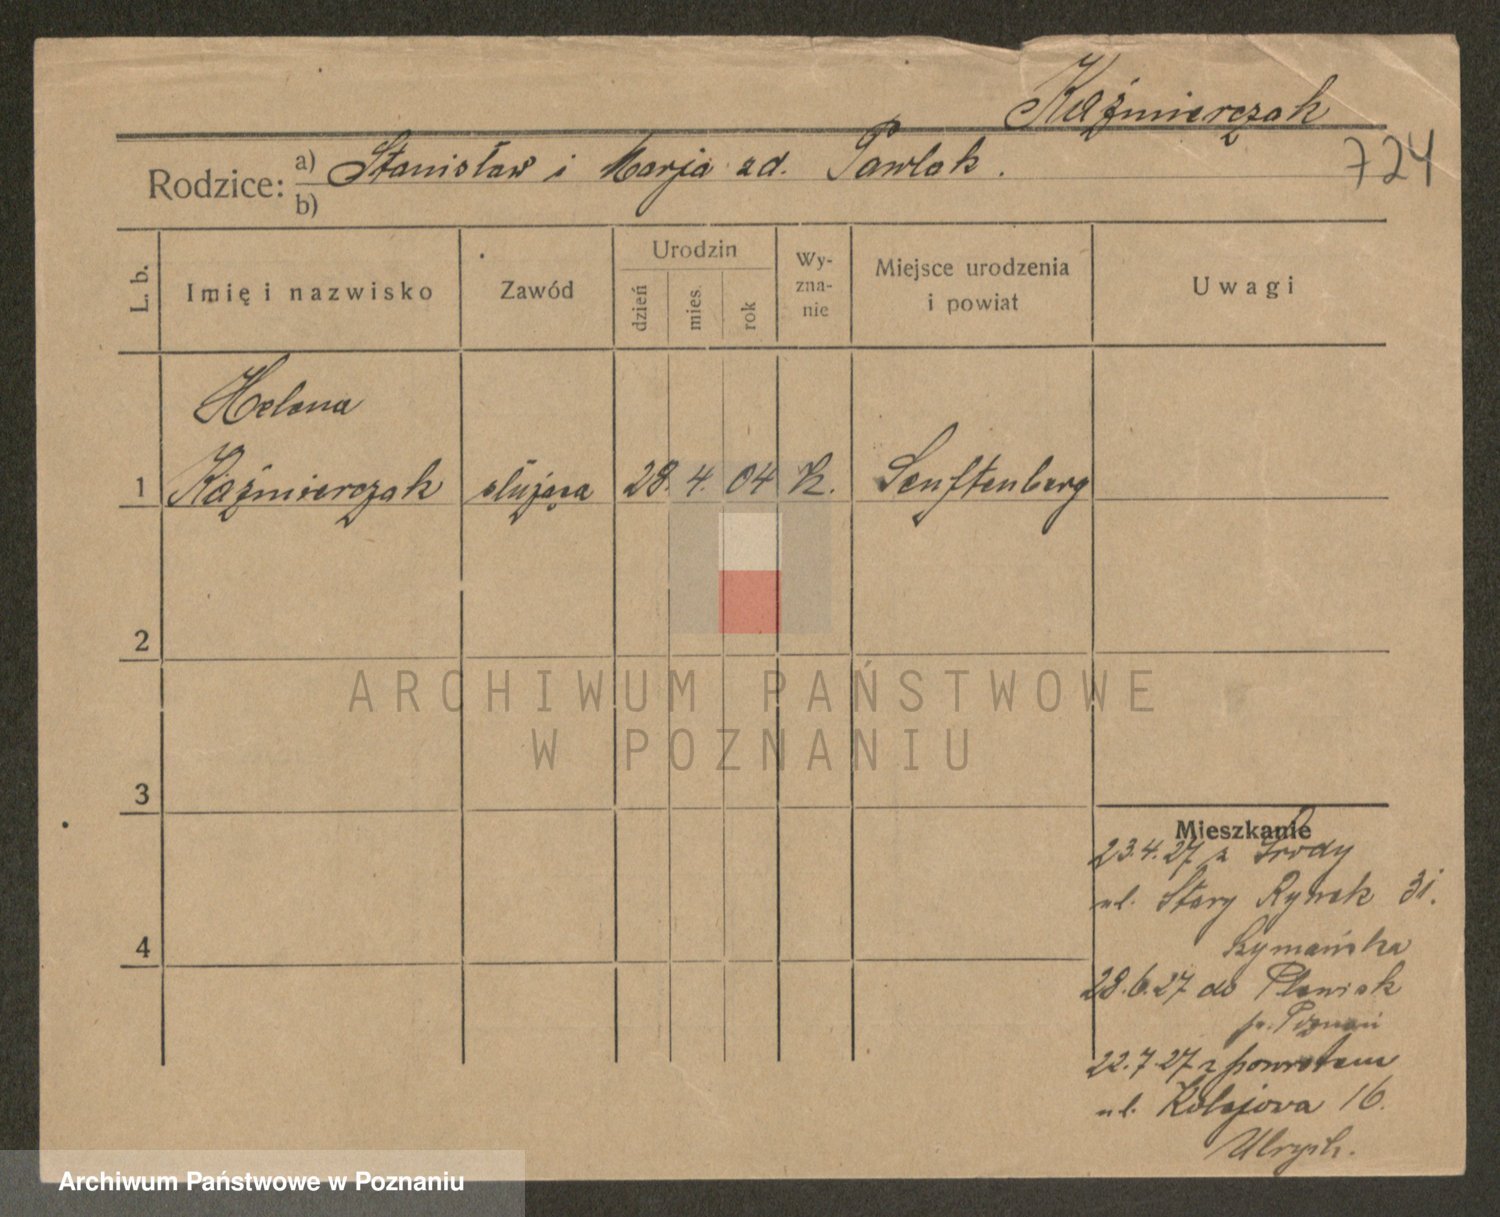 Kaźmierczak
724
Rodzice: a) Stanisław i Marja zd. Pawlak.
b)
L. b.
Imię i nazwisko
Zawód
Urodzin
dzień
mies.
rok
Wy-
zna-
nie
Miejsce urodzenia
i powiat
Uwagi
Helena
1 Kaźmierczak służąca 28. 4. 04 K. Senftenberg
2
ARCHIWUM PAŃSTWOWE
W POZNANIU
3
Mieszkanie
23.4.27 z Środy
ul. Stary Rynek 31.
Szymańska
4
28.6.27 do
p. Poznań
22.7.27 z powrotem
ul. Kolejowa 16.
Ulrych.
Archiwum Państwowe w Poznaniu